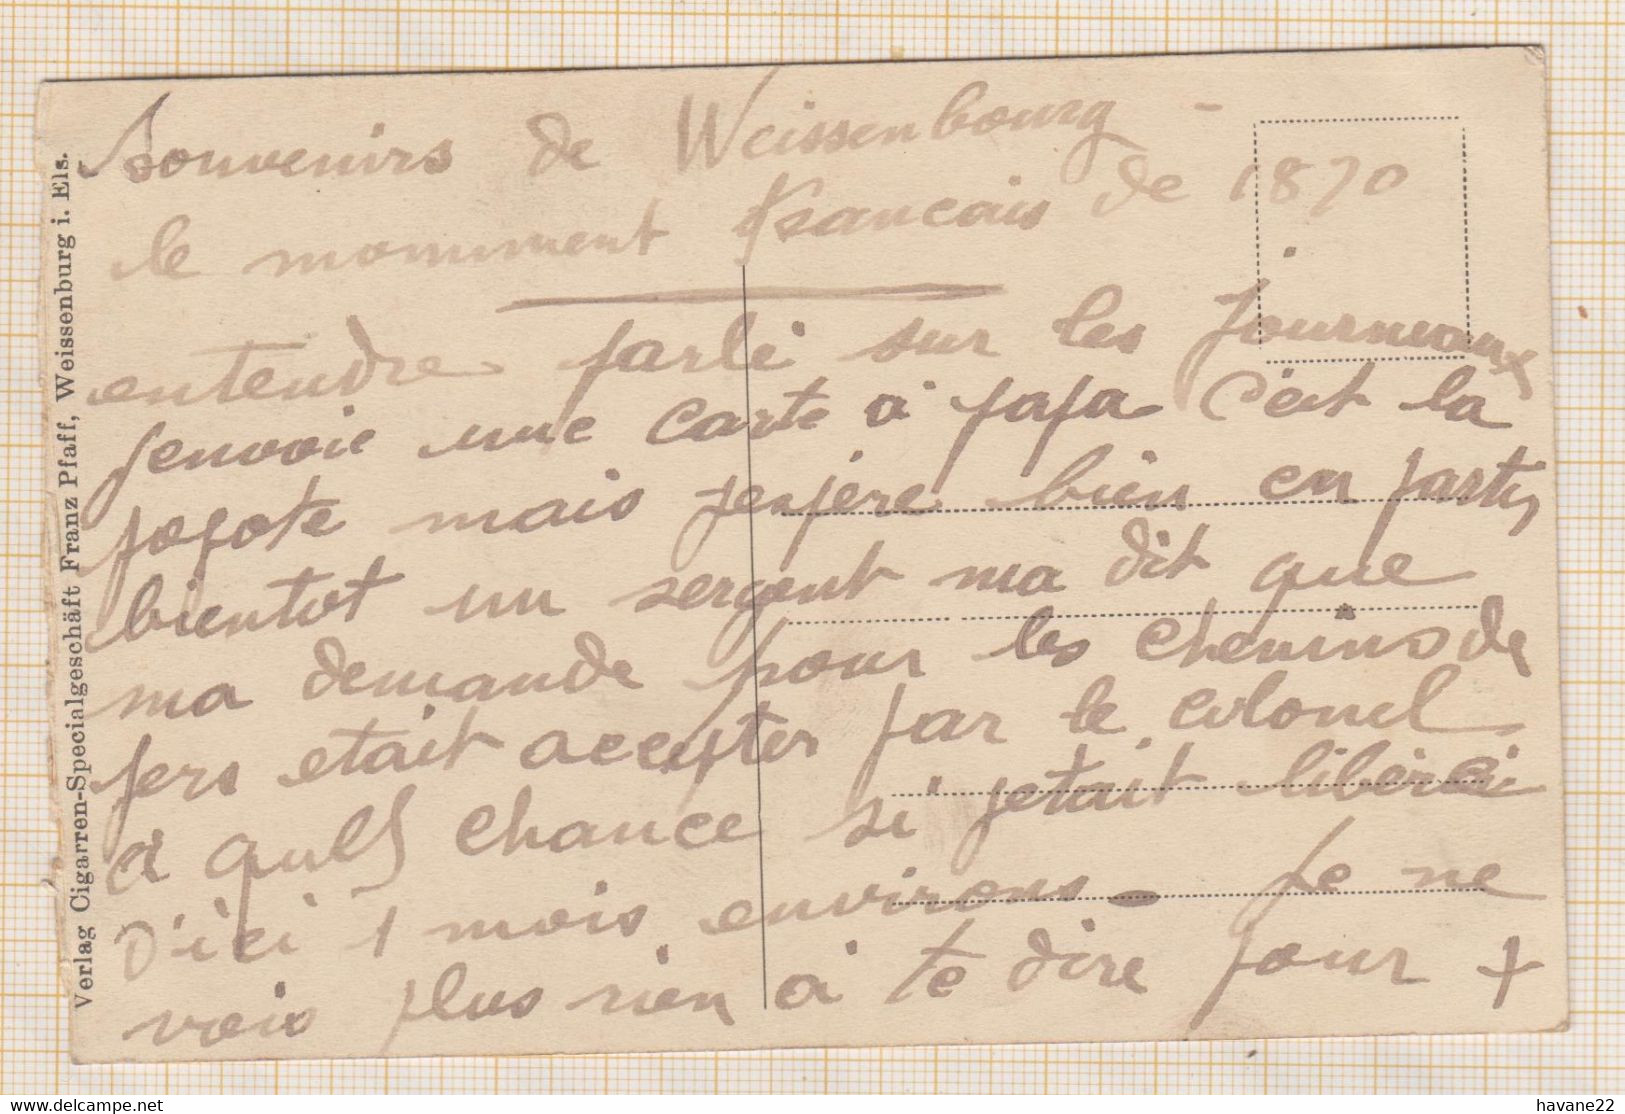 Souvenirs de Weissenbourg -
le monument francais de 1870
entendre parlé sur les journeaux
jenvoie une carte à papa c'est la
popote mais jenpère bien en partis
bientot un sergent ma dit que
ma demande pour les chemins de
fers etait accepter par le colonel
a quell chance si jetait libérér
D'ici 1 mois environs - Je ne
vois plus rien à te dire pour +
Verlag Cigarren-Specialgeschäft Franz Pfaff, Weissenburg i. Els.
havane22